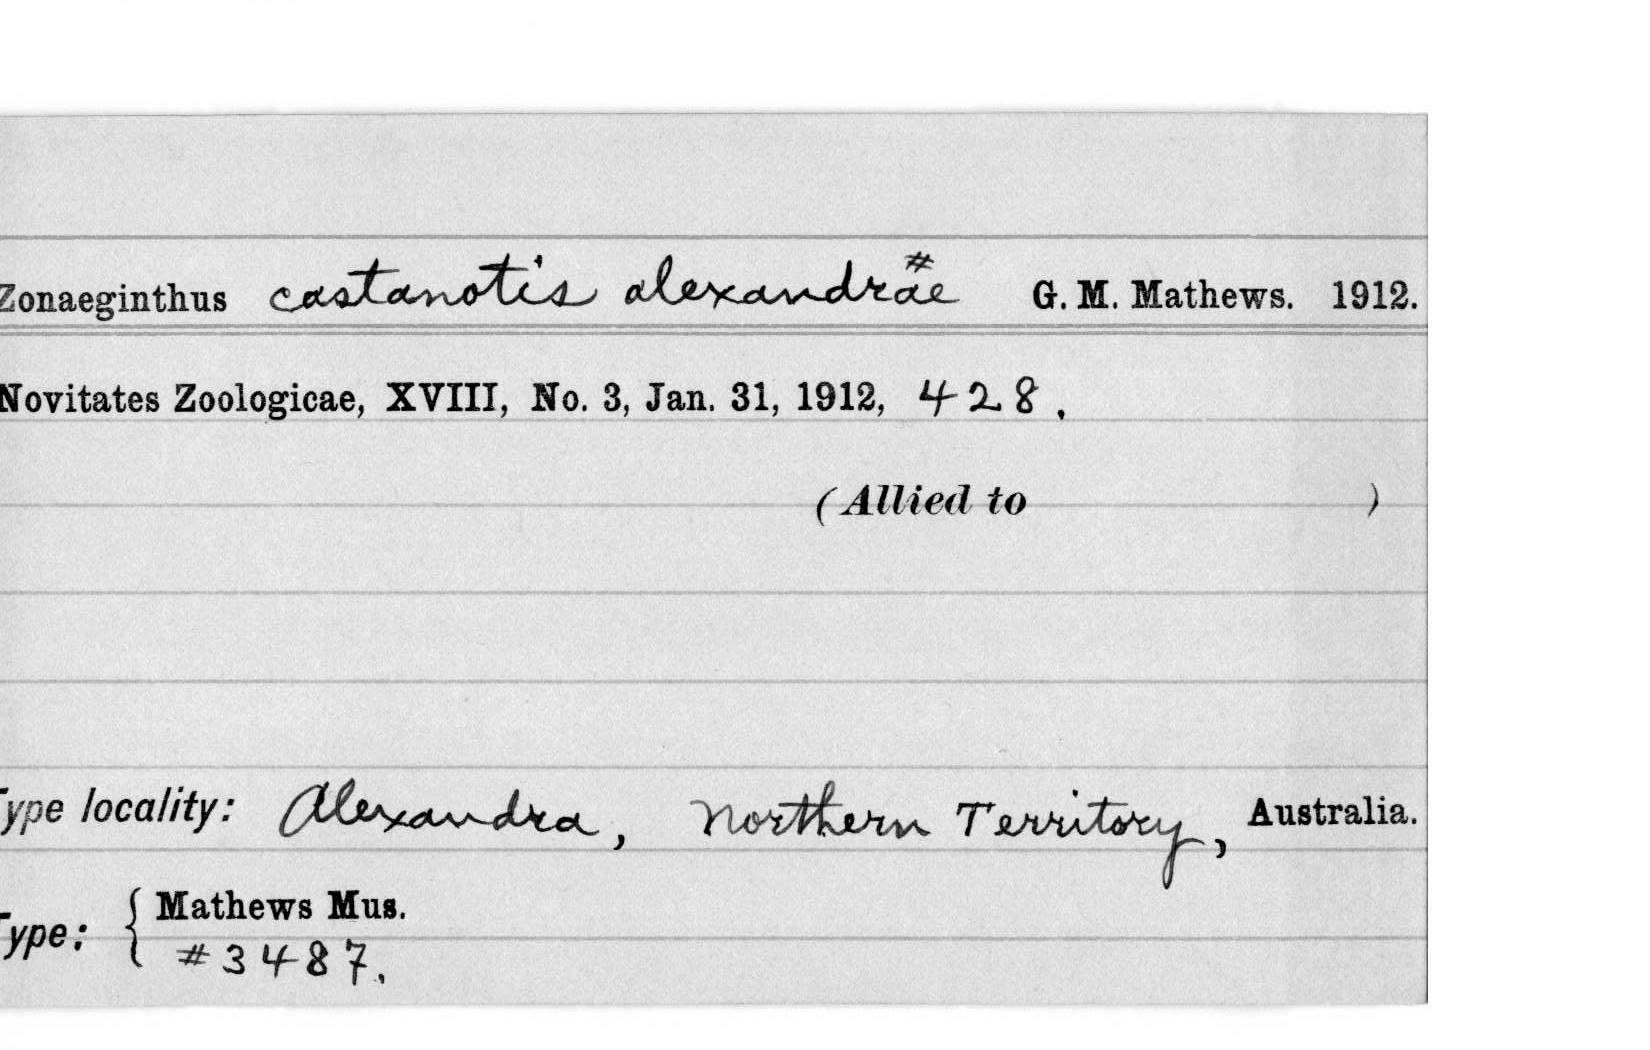 Zonaeginthus castanotis alexandrae # G. M. Mathews. 1912.
Novitates Zoologicae, XVIII, No. 3, Jan. 31, 1912, 428.
(Allied to )
Type locality: Alexandra, Northern Territory, Australia.
Type: { Mathews Mus.
#3487.